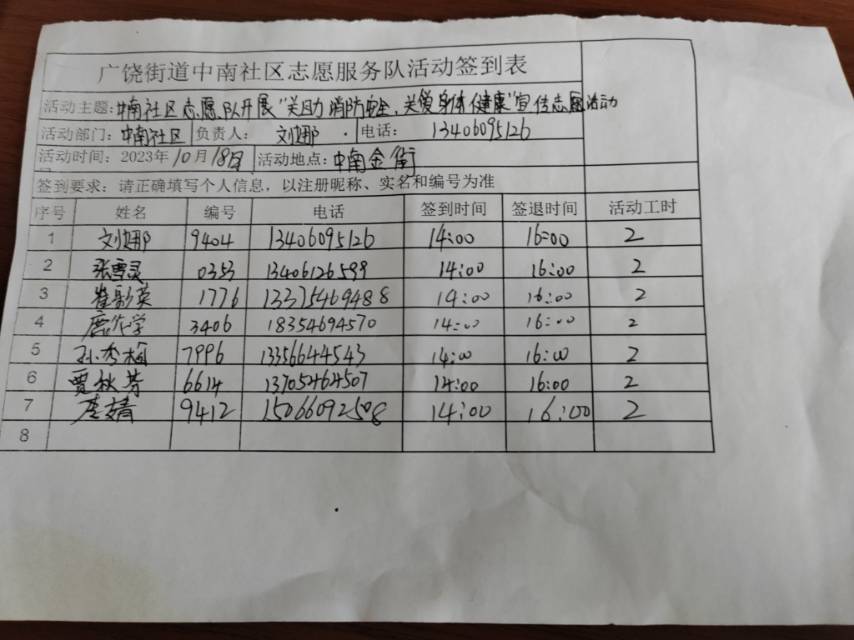 广饶街道中南社区志愿服务队活动签到表
活动主题：中南社区志愿队开展“关助消防安全，关爱身体健康”宣传志愿活动
活动部门：中南社区 负责人：刘娜 电话：13406095126
活动时间：2023年10月18日 活动地点：中南金街
签到要求：请正确填写个人信息，以注册昵称、实名和编号为准
序号 姓名 编号 电话 签到时间 签退时间 活动工时
1 刘娜 9404 13406095126 14:00 16:00 2
2 张雪灵 0353 13406126599 14:00 16:00 2
3 崔彩英 1776 13375469488 14:00 16:00 2
4 3406 18354694570 14:00 16:00 2
5 孙秀梅 7996 13356644543 14:00 16:00 2
6 贾秋芳 6614 13705464507 14:00 16:00 2
7 李婧 9412 15066092508 14:00 16:00 2
8